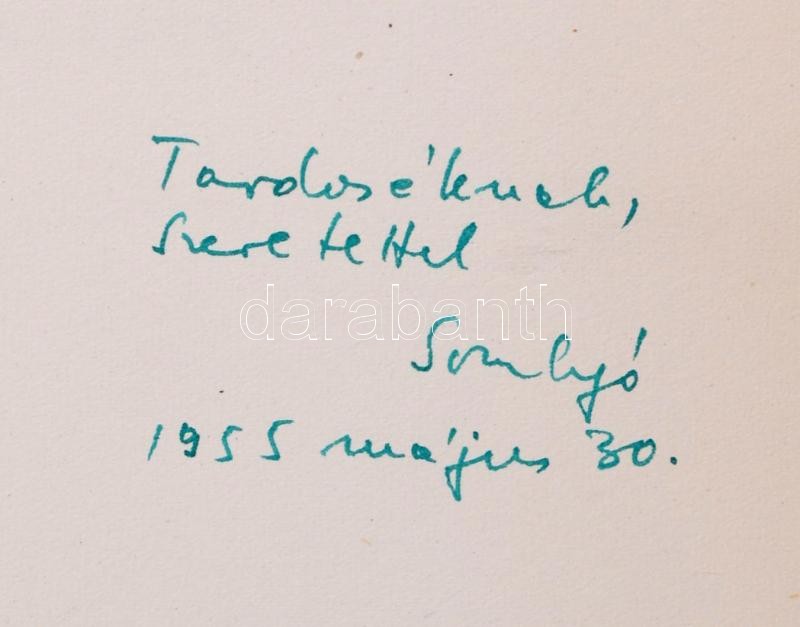 Tardoséknak,
szeretettel
darabanth
Somlyó
1955 május 30.